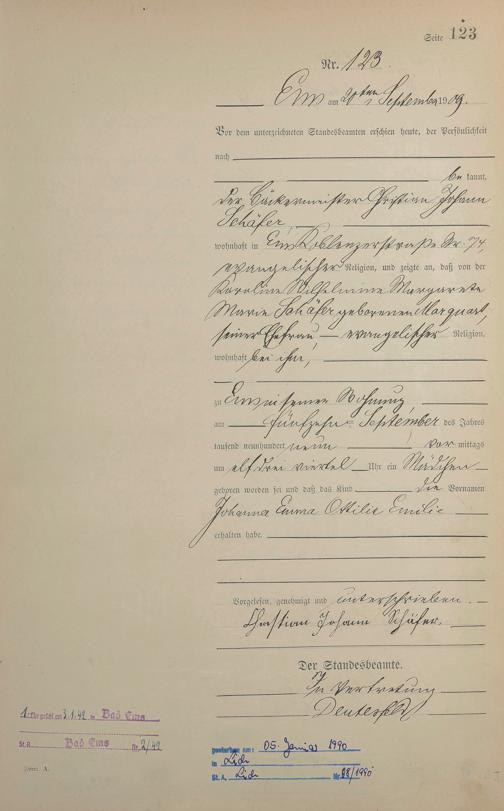 Seite 123
Nr. 123.
Ems am 20ten September 1909.
Vor dem unterzeichneten Standesbeamten erschien heute, der Persönlichkeit
nach
be kannt,
der Bäckermeister Christian Johann
Schäfer,
wohnhaft in Ems Koblenzerstraße Nr. 74,
evangelischer Religion, und zeigte an, daß von der
Karoline Wilhelmine Margarete
Marie Schäfer geborenen Marquart,
seiner Ehefrau, — evangelischer Religion,
wohnhaft bei ihm,
zu Ems in seiner Wohnung
am fünfzehn September des Jahres
tausend neunhundert neun vor mittags
um elf drei viertel Uhr ein Mädchen
geboren worden sei und daß das Kind die Vornamen
Johanna Emma Ottilie Emilie
erhalten habe.
Vorgelesen, genehmigt und unterschrieben.
Christian Johann Schäfer.
Der Standesbeamte.
In Vertretung
1. am 3.1.42 in Bad Ems
St.A. Bad Ems Nr. 2/42
gestorben am: 05. Januar 1990
in Lich
St. A. Lich Nr. 28/1990